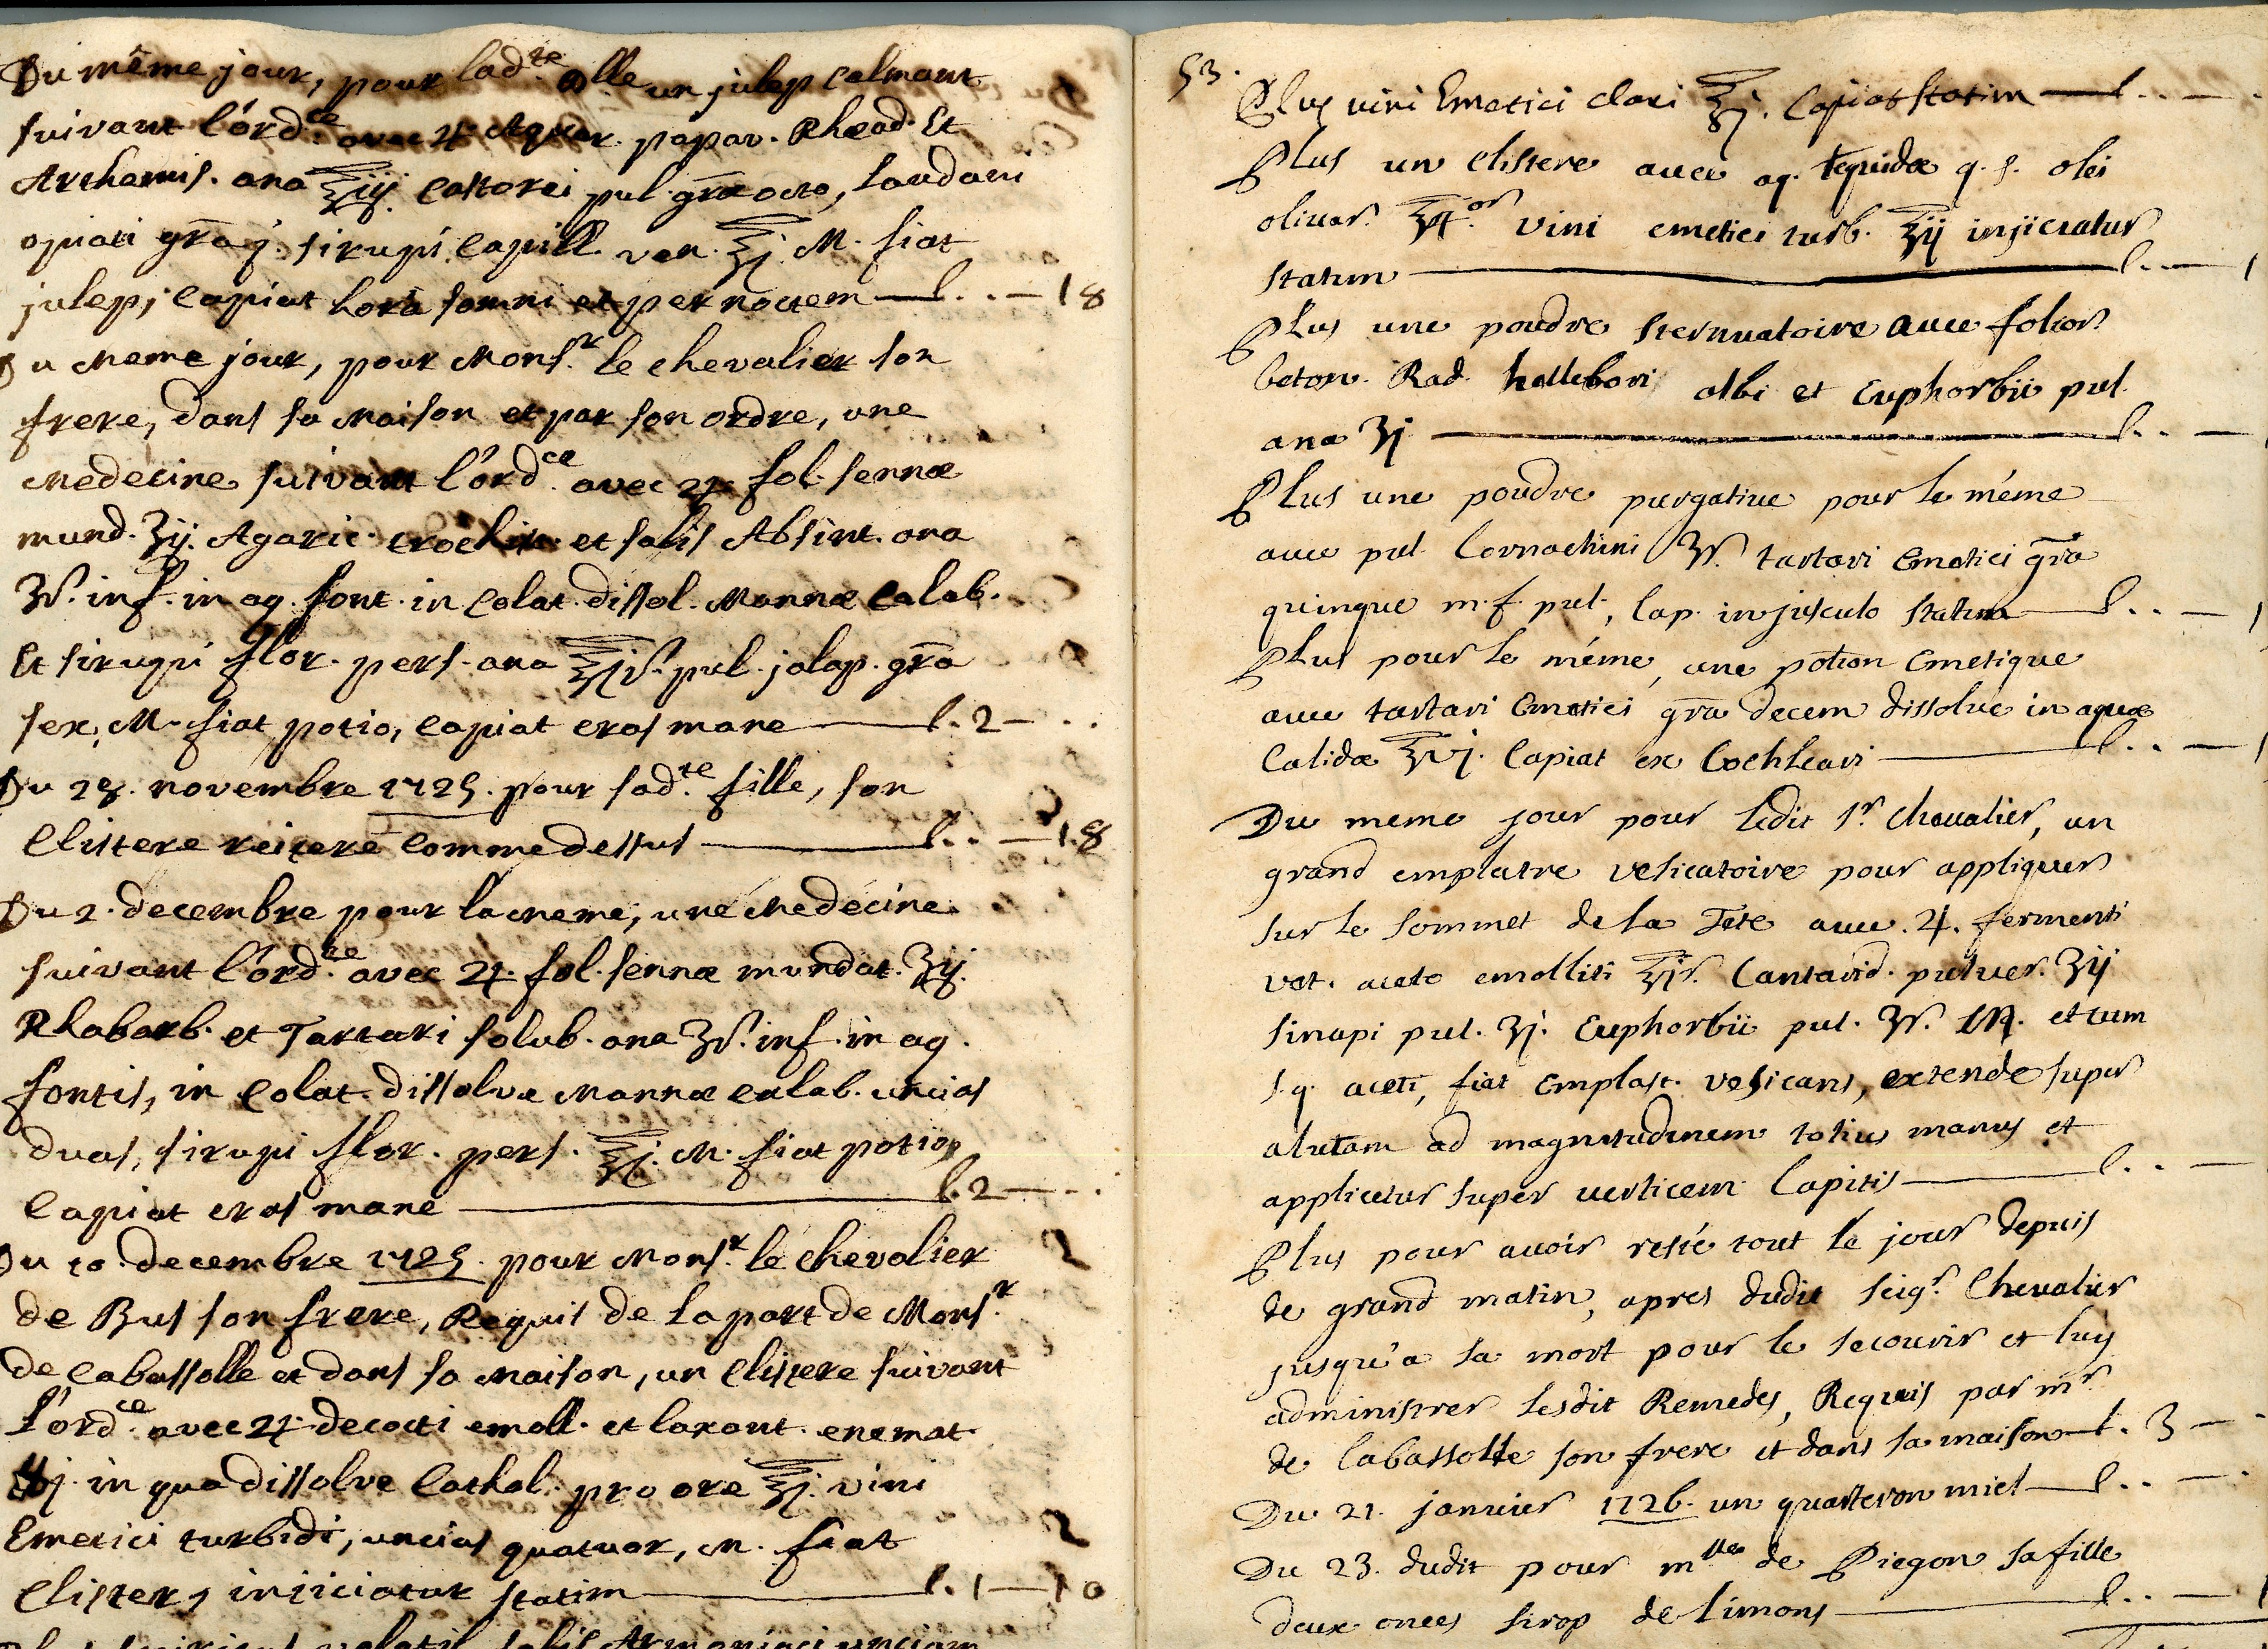 Du même jour, pour lad.te Dlle un julep calmant
suivant l'ord.ce avec ♃ Aquar. papav. Rhœad. Et
Arthamis. ana ℥iij. Castorei pul. gra octo, Laudani
opiati gra j. sirupi Capill. ven. ℥j. M. fiat
julep, Capiat hora somni et per noctem — l . . — 18
Du meme jour, pour Mons.r le chevalier son
frere, dans sa maison et par son ordre, une
Medecine suivant l'ord.ce avec ♃ fol. sennæ
mund. ʒij. Agaric. trochis. et salis Absint. ana
ʒß. inf. in aq. font. in Colat. dissol. Mannæ Calab.
Et sirupi flor. pers. ana ℥jß. pul. jalap. gra
sex, M. fiat potio, capiat cras mane — l. 2 — . .
Du 28. novembre 1725. pour sad.te fille, son
Clistere reiteré comme dessus — l . . — 18
Du 2. decembre pour la meme, une Medecine
suivant l'ord.ce avec ♃. fol. sennæ mundat. ʒij.
Rhabarb. et Tartari solub. ana ʒß. inf. in aq.
fontis, in Colat. dissolve Mannæ calab. uncias
duas, sirupi flor. pers. ℥j. M. fiat potio,
Capiat cras mane — l. 2 — . .
Du 10. decembre 1725. pour Mons.r le chevalier
de Bus son frere, Requis de la part de Mons.r
de Cabassolle et dans sa maison, un Clistere suivant
l'ord.ce avec ♃. decocti emoll. et laxant. enemat.
℔j. in qua dissolve Cathol. pro ore ℥j. vini
Emetici turbidi, uncias quatuor, M. fiat
Clister, iniiciatur statim — l. 1 — 10
volatil. salis Armoniaci unciam
53.
Plus vini Emetici clari ℥j. Capiat statim — l . . —
Plus un clistere avec aq. tepidæ q. s. olei
olivar. ℥4.or vini emetici turb. ℥ij injiciatur
statim — l . . — 1
Plus une poudre sternuatoire avec folior.
beton. Rad. hellebori albi et Euphorbii pul.
ana ʒj — l . . —
Plus une poudre purgative pour le méme
avec pul. Cornachini ʒß. tartari Emetici gra
quinque m. f. pul., Cap. in jusculo statim — l . . — 1
Plus pour le méme, une potion Emetique
avec tartari Emetici gra decem dissolve in aquæ
Calidæ ℥vj. Capiat ex Cochleari — l . . — 1
Du meme jour pour ledit Sr. Chevalier, un
grand emplatre vesicatoire pour appliquer
sur le sommet de la Tete avec. ♃. fermenti
vet. aceto emolliti ℥jß. Cantarid. pulver. ʒij
sinapi pul. ʒj. Euphorbii pul. ʒß. M. et cum
s. q. aceti, fiat Emplast. vesicans, extende super
alutam ad magnitudinem totius manus et
applicetur super verticem Capitis — l . . —
Plus pour avoir resté tout le jour depuis
de grand matin, apres dudit seigr. Chevalier
jusqu'a sa mort pour le secourir et luy
administrer lesdit Remedes, Requis par mr
de Cabassolle son frere et dans sa maison — l. 3 —
Du 21. janvier 1726. un quarteron miel — l . . — .
Du 23. dudit pour mlle de Piegon sa fille
deux onces sirop de limons — l . . — 1